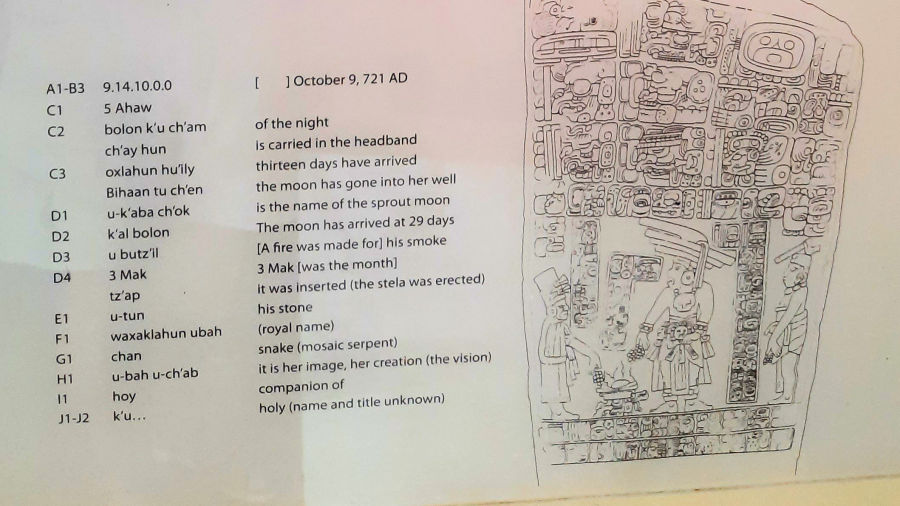 A1-B3 9.14.10.0.0 [ ] October 9, 721 AD
C1 5 Ahaw
C2 bolon k'u ch'am of the night
ch'ay hun is carried in the headband
C3 oxlahun hu'ily thirteen days have arrived
Bihaan tu ch'en the moon has gone into her well
D1 u-k'aba ch'ok is the name of the sprout moon
D2 k'al bolon The moon has arrived at 29 days
D3 u butz'il [A fire was made for] his smoke
D4 3 Mak 3 Mak [was the month]
tz'ap it was inserted (the stela was erected)
E1 u-tun his stone
F1 waxaklahun ubah (royal name)
G1 chan snake (mosaic serpent)
H1 u-bah u-ch'ab it is her image, her creation (the vision)
I1 hoy companion of
J1-J2 k'u... holy (name and title unknown)